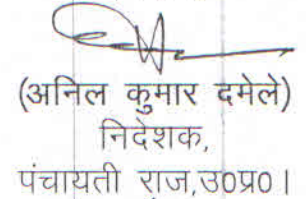 (अनिल कुमार दमेले)
निदेशक,
पंचायती राज,उ०प्र०।